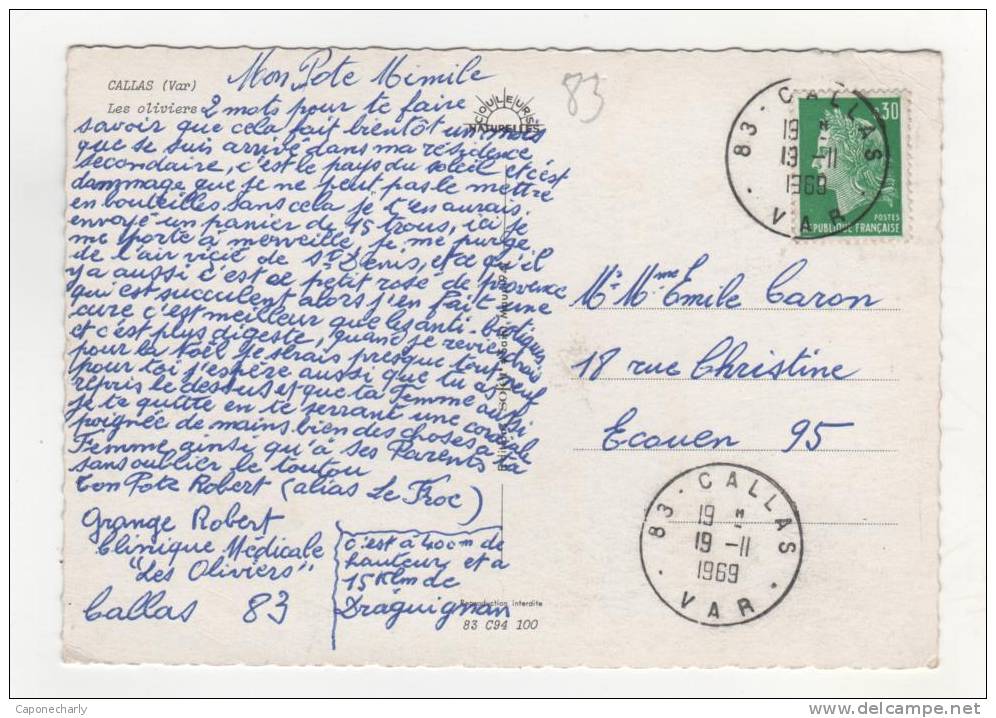 CALLAS (Var)
Les oliviers
Mon Pote Mimile
2 mots pour te faire
savoir que cela fait bientôt un mois
que se suis arrivé dans ma résidence
secondaire, c'est le pays du soleil et c'est
dammage que je ne peut pas le mettre
en bouteilles sans cela je t'en aurais
envoyé un panier de 15 trous, ici je
me porte à merveille, je me purge
de l'air vicié de St Denis, et ce qu'il
y a aussi c'est ce petit rosé de provence
qui est succulent alors j'en fait une
cure c'est meilleur que les anti-biotiques
et c'est plus digeste, quand je reviendrais
pour la Noël je serais presque tout neuf
pour toi j'espère aussi que tu as
repris le dessus et que ta femme aussi
je te quitte en te serrant une cordiale
poignée de mains bien des choses à ta
Femme ainsi qu'à ses Parents
sans oublier le toutou
Ton Pote Robert (alias Le Froc)
Grange Robert
Clinique Médicale
"Les Oliviers"
Callas 83
c'est à 400m de
hauteur et à
15 Klm de
Draguignan
Reproduction interdite
83 C94 100
COULEURS
NATURELLES
83
0,30
POSTES
RÉPUBLIQUE FRANÇAISE
83 - CALLAS
19 H
19 -11
1969
VAR
Mr Mme Emile Caron
18 rue Christine
Ecouen 95
83 - CALLAS
19 H
19 -11
1969
VAR
Caponecharly
www.delcampe.net